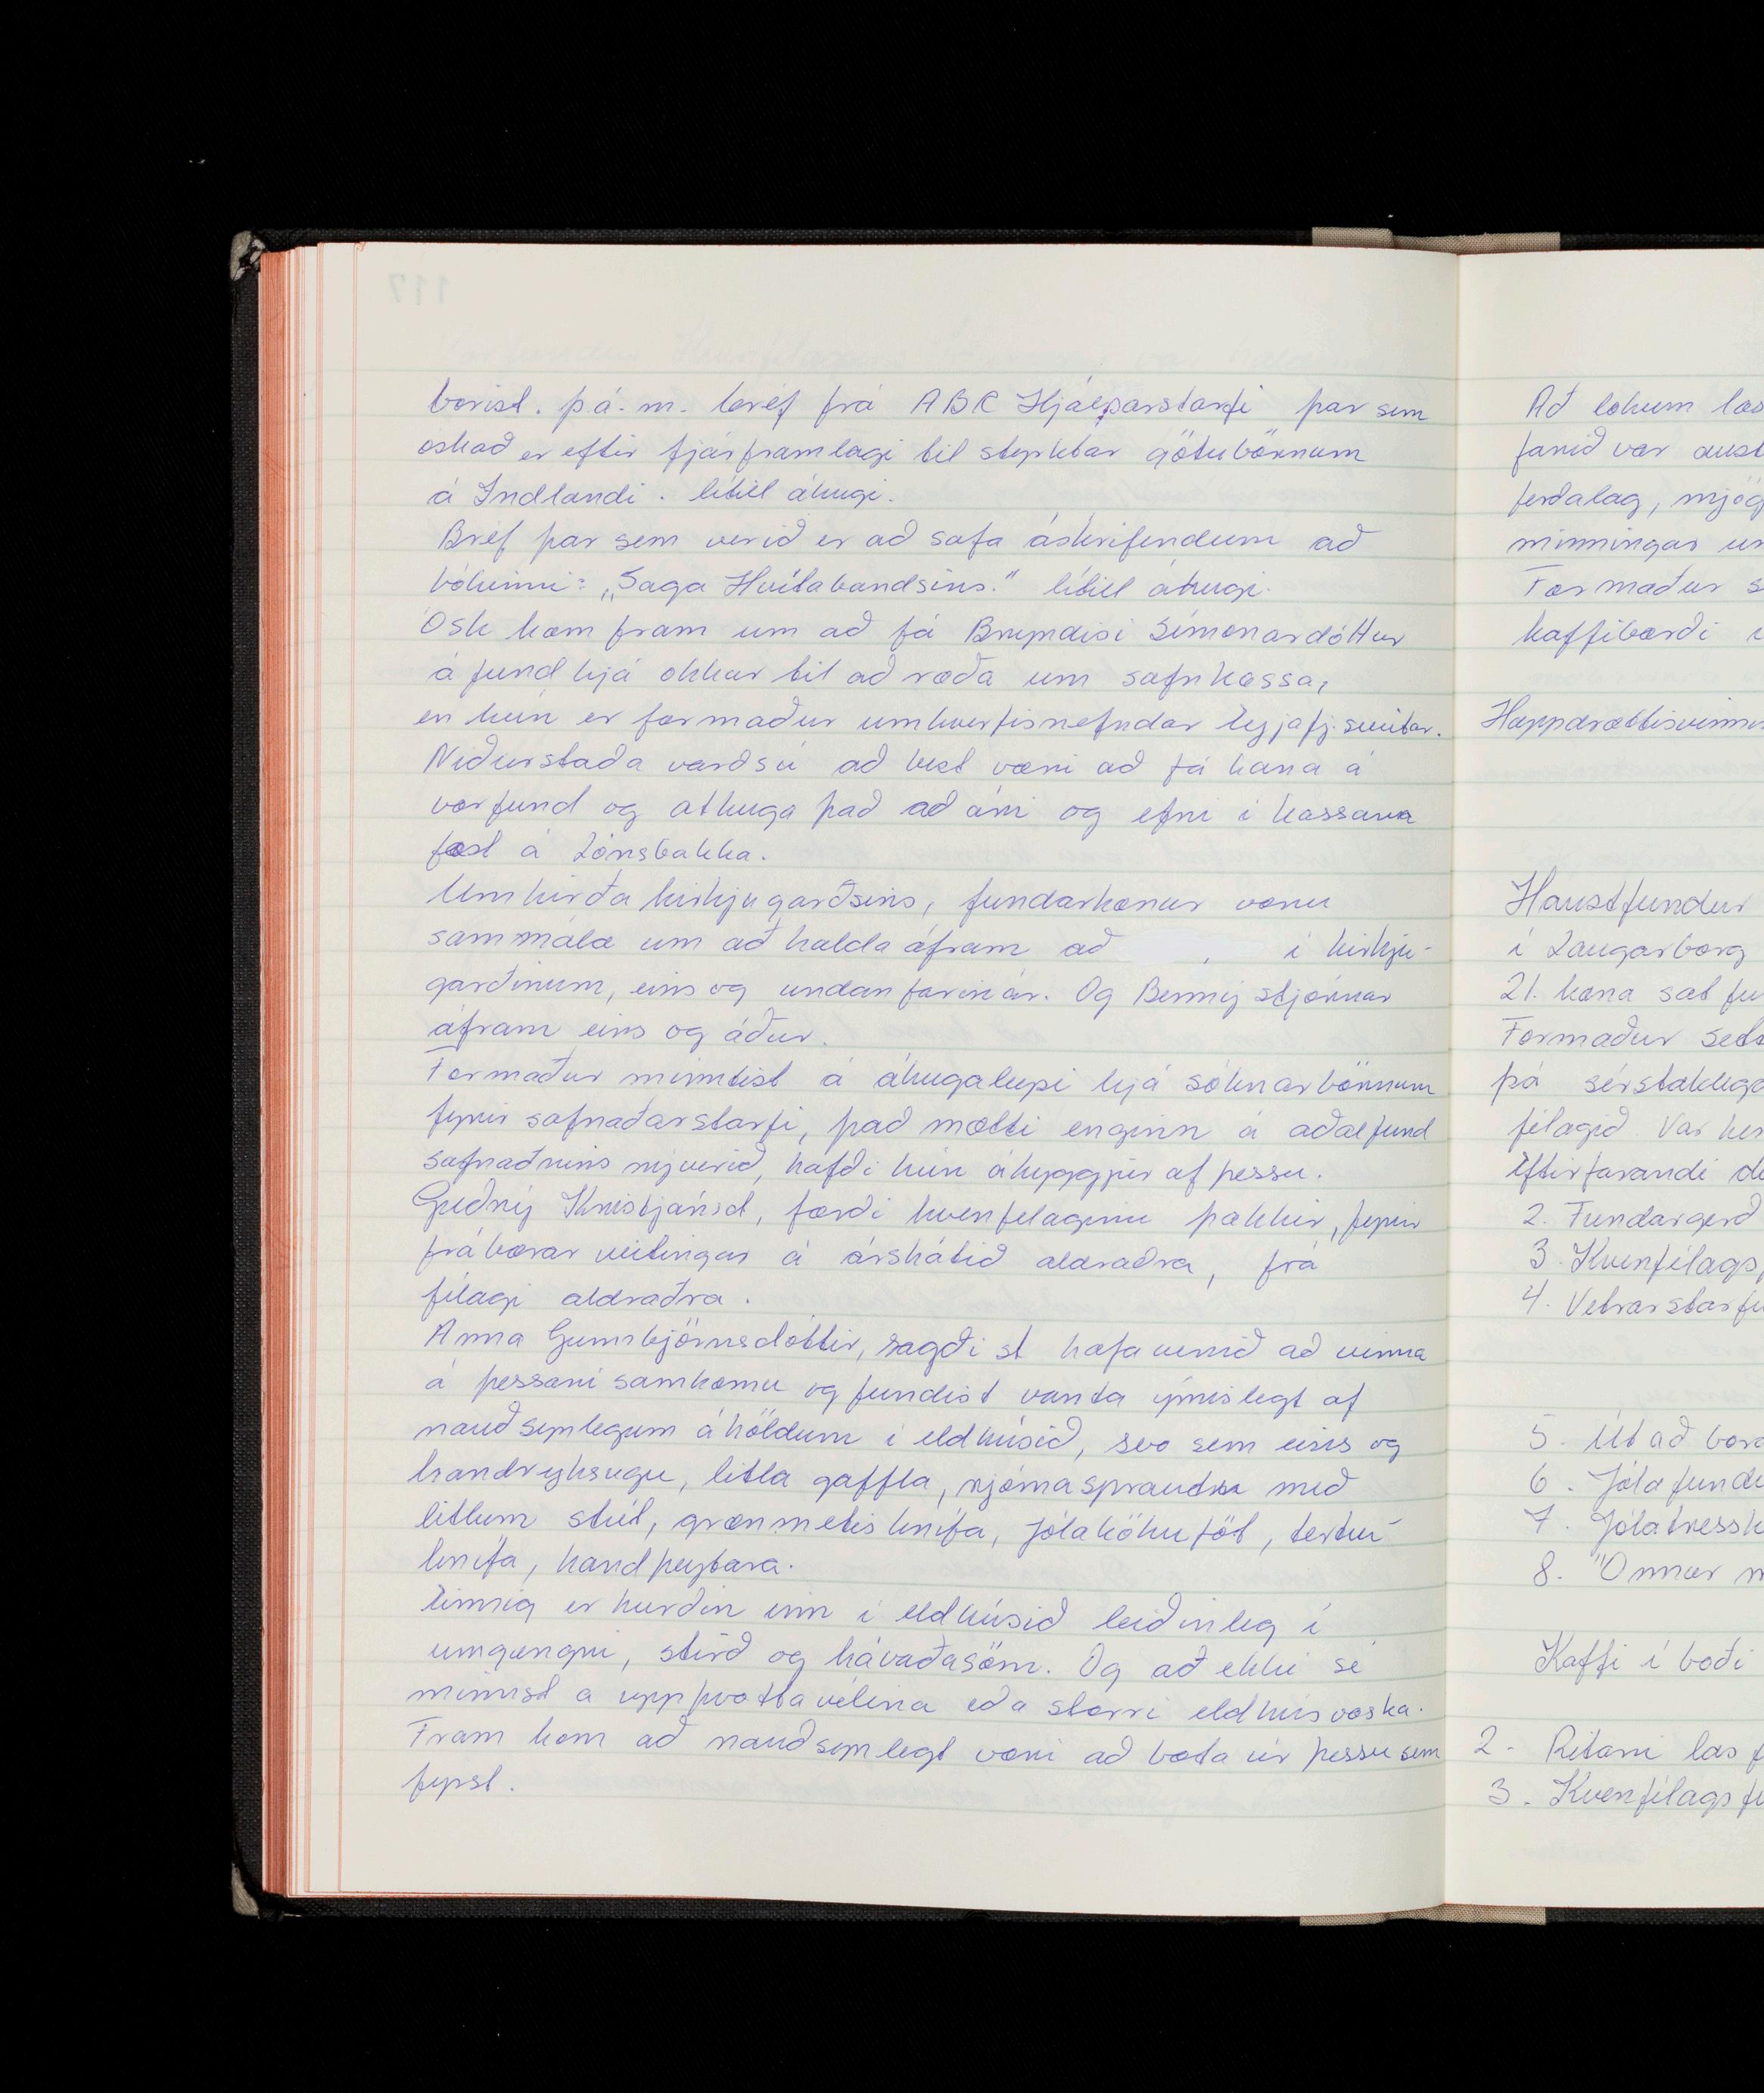 borist. þ.á.m. bréf frá ABC Hjálparstarfi þar sem
óskað er eftir fjárframlagi til styrktar götubörnum
á Indlandi. lítill áhugi.
Bréf þar sem verið er að safa áskrifendum að
bókinni: „Saga Hvítabandsins." lítill áhugi.
Ósk kom fram um að fá Bryndísi Símonardóttur
á fund hjá okkur til að ræða um safnkassa,
en hún er formaður umhverfisnefndar Eyjafj.sveitar.
Niðurstaða varð sú að best væri að fá hana á
vorfund og athuga það að áni og efni í kassana
fæst á Lónsbakka.
Umhirða kirkjugarðsins, fundarkonur voru
sammála um að halda áfram að í kirkju-
garðinum, eins og undanfarin ár. Og Benný stjórnar
áfram eins og áður.
Formaður minntist á áhugaleysi hjá sóknarbörnum
fyrir safnaðarstarfi, það mætti enginn á aðalfund
safnaðarins nýverið, hafði hún áhyggjur af þessu.
Guðný Kristjánsd, færði kvenfélaginu þakkir, fyrir
frábærar veitingar á árshátíð aldraðra, frá
félagi aldraðra.
Anna Gunnbjörnsdóttir, sagði st hafa verið að vinna
á þessari samkomu og fundist vanta ýmislegt af
nauðsynlegum áhöldum í eldhúsið, svo sem eins og
handryksugu, litla gaffla, rjómasprautu með
litlum stút, grænmetis hnífa, jólakökuföt, tertu-
hnífa, handþeytara.
Einnig er hurðin inn í eldhúsið leiðinleg í
umgengni, stirð og hávaðasöm. Og að ekki sé
minnst á uppþvottavélina eða stærri eldhúsvaska.
Fram kom að nauðsynlegt væri að bæta úr þessu sem
fyrst.
Að lokum las
farið var aust
ferðalag, mjög
minningar um
Formaður s
kaffiborði
Happdrættisvinn
Haustfundur
í Laugarborg
21. kona sat fu
Formaður setti
þá sérstaklega
félagið. Var
Eftirfarandi da
2. Fundargerð
3. Kvenfélags
4. Vetrarstarfi
5. Út að bor
6. Jólafundu
7. Jólatréssk
8. Önnur m
Kaffi í boði
2. Ritari las f
3. Kvenfélags f